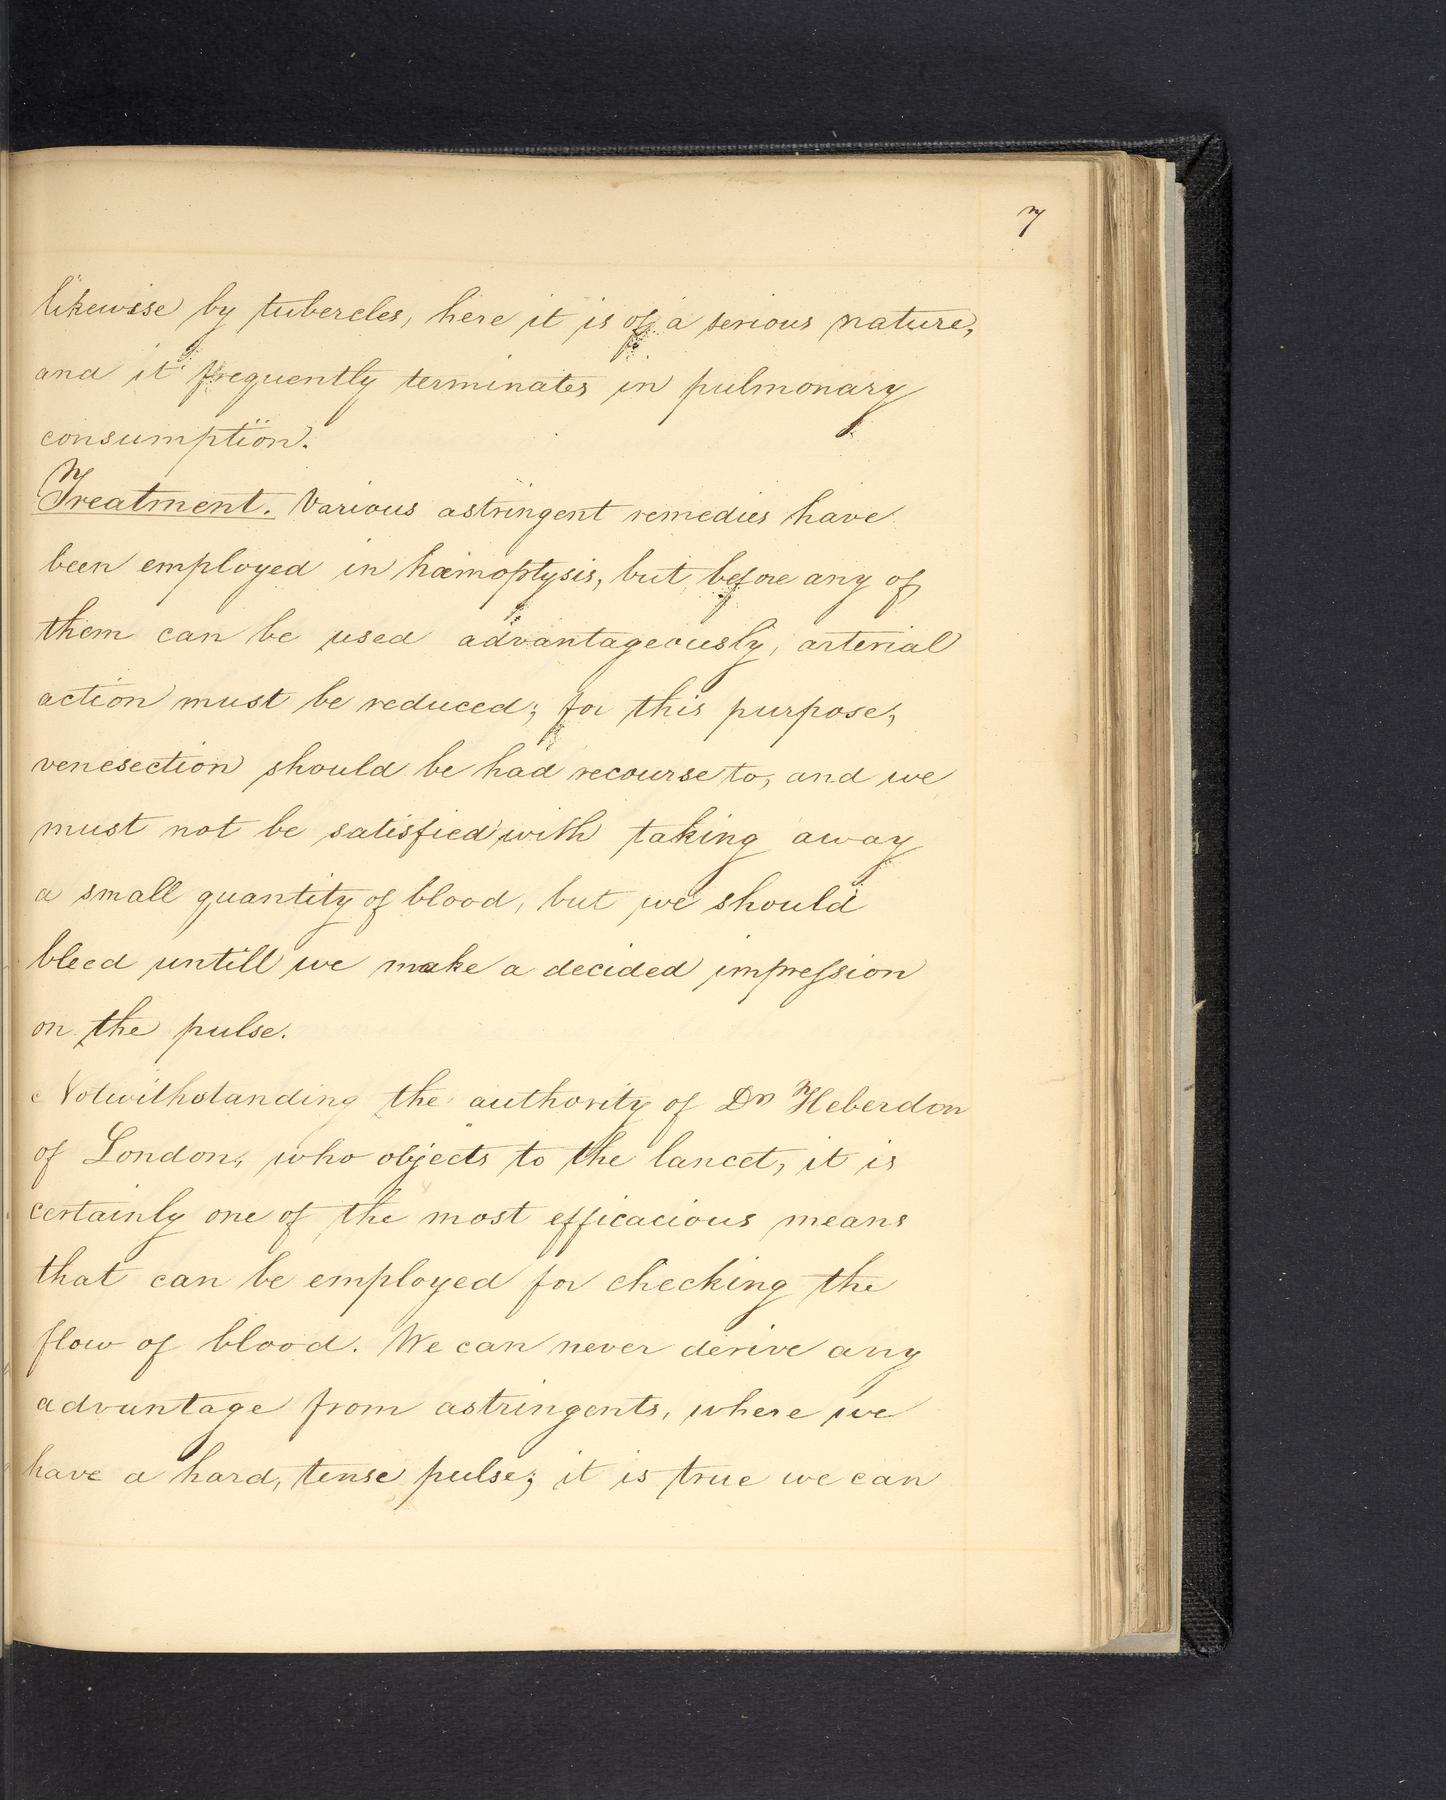 7
likewise by tubercles, here it is of a serious nature,
and it frequently terminates in pulmonary
consumption.
Treatment. Various astringent remedies have
been employed in hæmoptysis, but before any of
them can be used advantageously, arterial
action must be reduced; for this purpose,
venesection should be had recourse to, and we
must not be satisfied with taking away
a small quantity of blood, but we should
bleed untill we make a decided impression
on the pulse.
Notwithstanding the authority of Dr Heberdon
of London, who objects to the lancet, it is
certainly one of the most efficacious means
that can be employed for checking the
flow of blood. We can never derive any
advantage from astringents, where we
have a hard, tense pulse; it is true we can